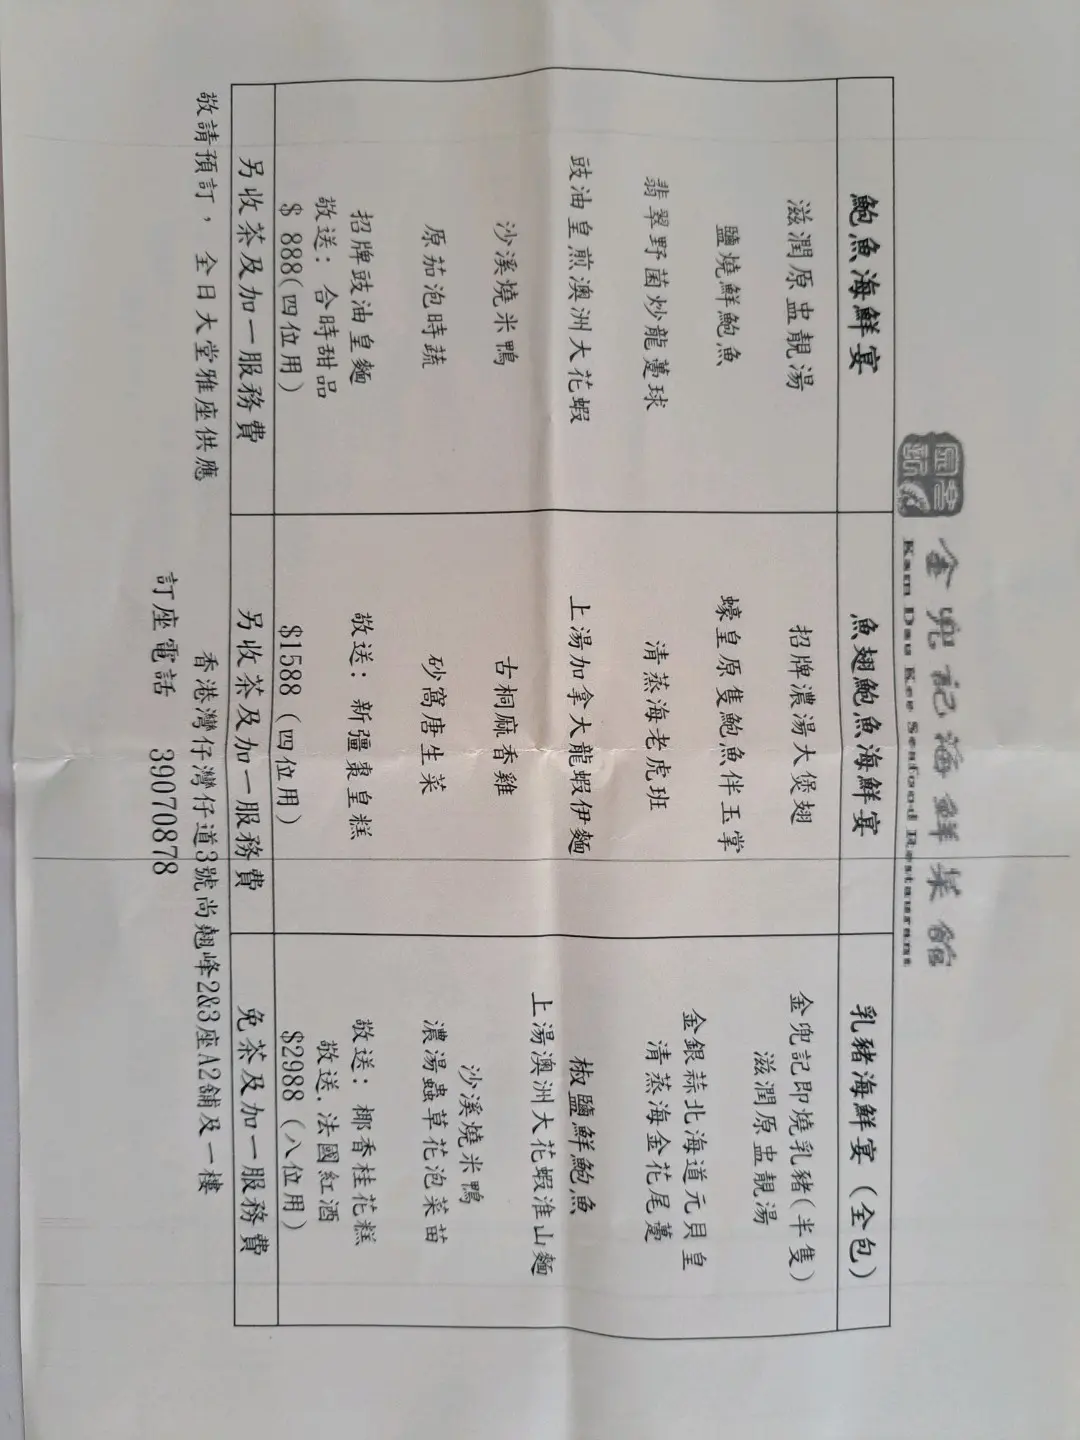 金兜記海鮮菜館
Kam Dau Kee Seafood Restaurant
鮑魚海鮮宴
滋潤原盅靚湯
鹽燒鮮鮑魚
翡翠野菌炒龍躉球
豉油皇煎澳洲大花蝦
沙溪燒米鴨
原茄泡時蔬
招牌豉油皇麵
敬送：合時甜品
$ 888(四位用)
另收茶及加一服務費
魚翅鮑魚海鮮宴
招牌濃湯大煲翅
蠔皇原隻鮑魚伴玉掌
清蒸海老虎班
上湯加拿大龍蝦伊麵
古桐麻香雞
砂窩唐生菜
敬送：新疆棗皇糕
$1588 (四位用)
另收茶及加一服務費
乳豬海鮮宴 (全包)
金兜記即燒乳豬(半隻)
滋潤原盅靚湯
金銀蒜北海道元貝皇
清蒸海金花尾躉
椒鹽鮮鮑魚
上湯澳洲大花蝦淮山麵
沙溪燒米鴨
濃湯蟲草花泡菜苗
敬送：椰香桂花糕
敬送．法國紅酒
$2988 (八位用)
免茶及加一服務費
敬請預訂，全日大堂雅座供應
香港灣仔灣仔道3號尚翹峰2&3座A2舖及一樓
訂座電話 39070878